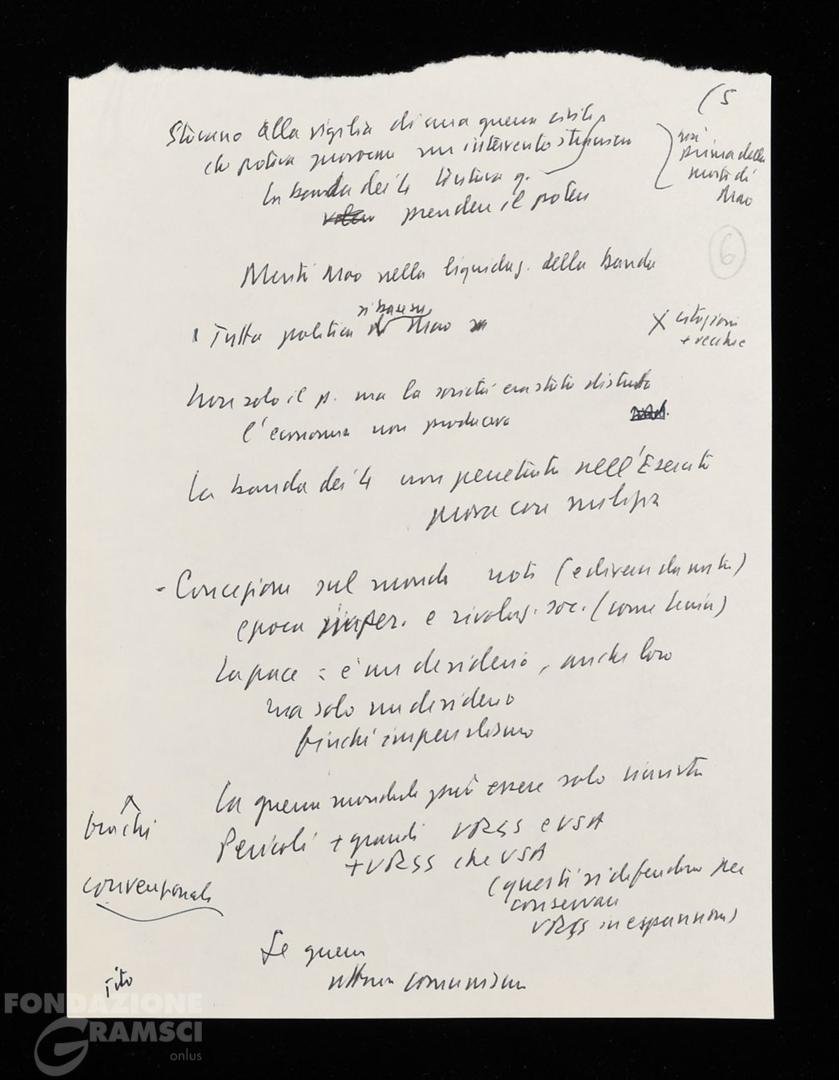 (5
Stavano alla vigilia di una guerra civile
che poteva provocare un intervento straniero
la banda dei 4 tentava q.
prendere il potere
prima della
morte di
Mao
6
Meriti Mao nella liquidaz. della banda
Tutta politica Mao
X citazioni
+ vecchie
non solo il p. ma la società era stata distrutta
l'economia non produceva
La banda dei 4 non penetrata nell'Esercito
prova con
- Concezione sul mondo nota (e divenda nota)
epoca imper. e rivoluz. soc. (come Lenin)
La pace = è un desiderio, anche loro
ma solo un desiderio
finché imperialismo
La guerra mondiale può essere solo rinviata
Pericoli + grandi URSS e USA
+ URSS che USA
(questi si difendono per
conservare
URSS in espansione)
convenzionale
Se guerra
comunismo
Tito
FONDAZIONE
GRAMSCI
onlus